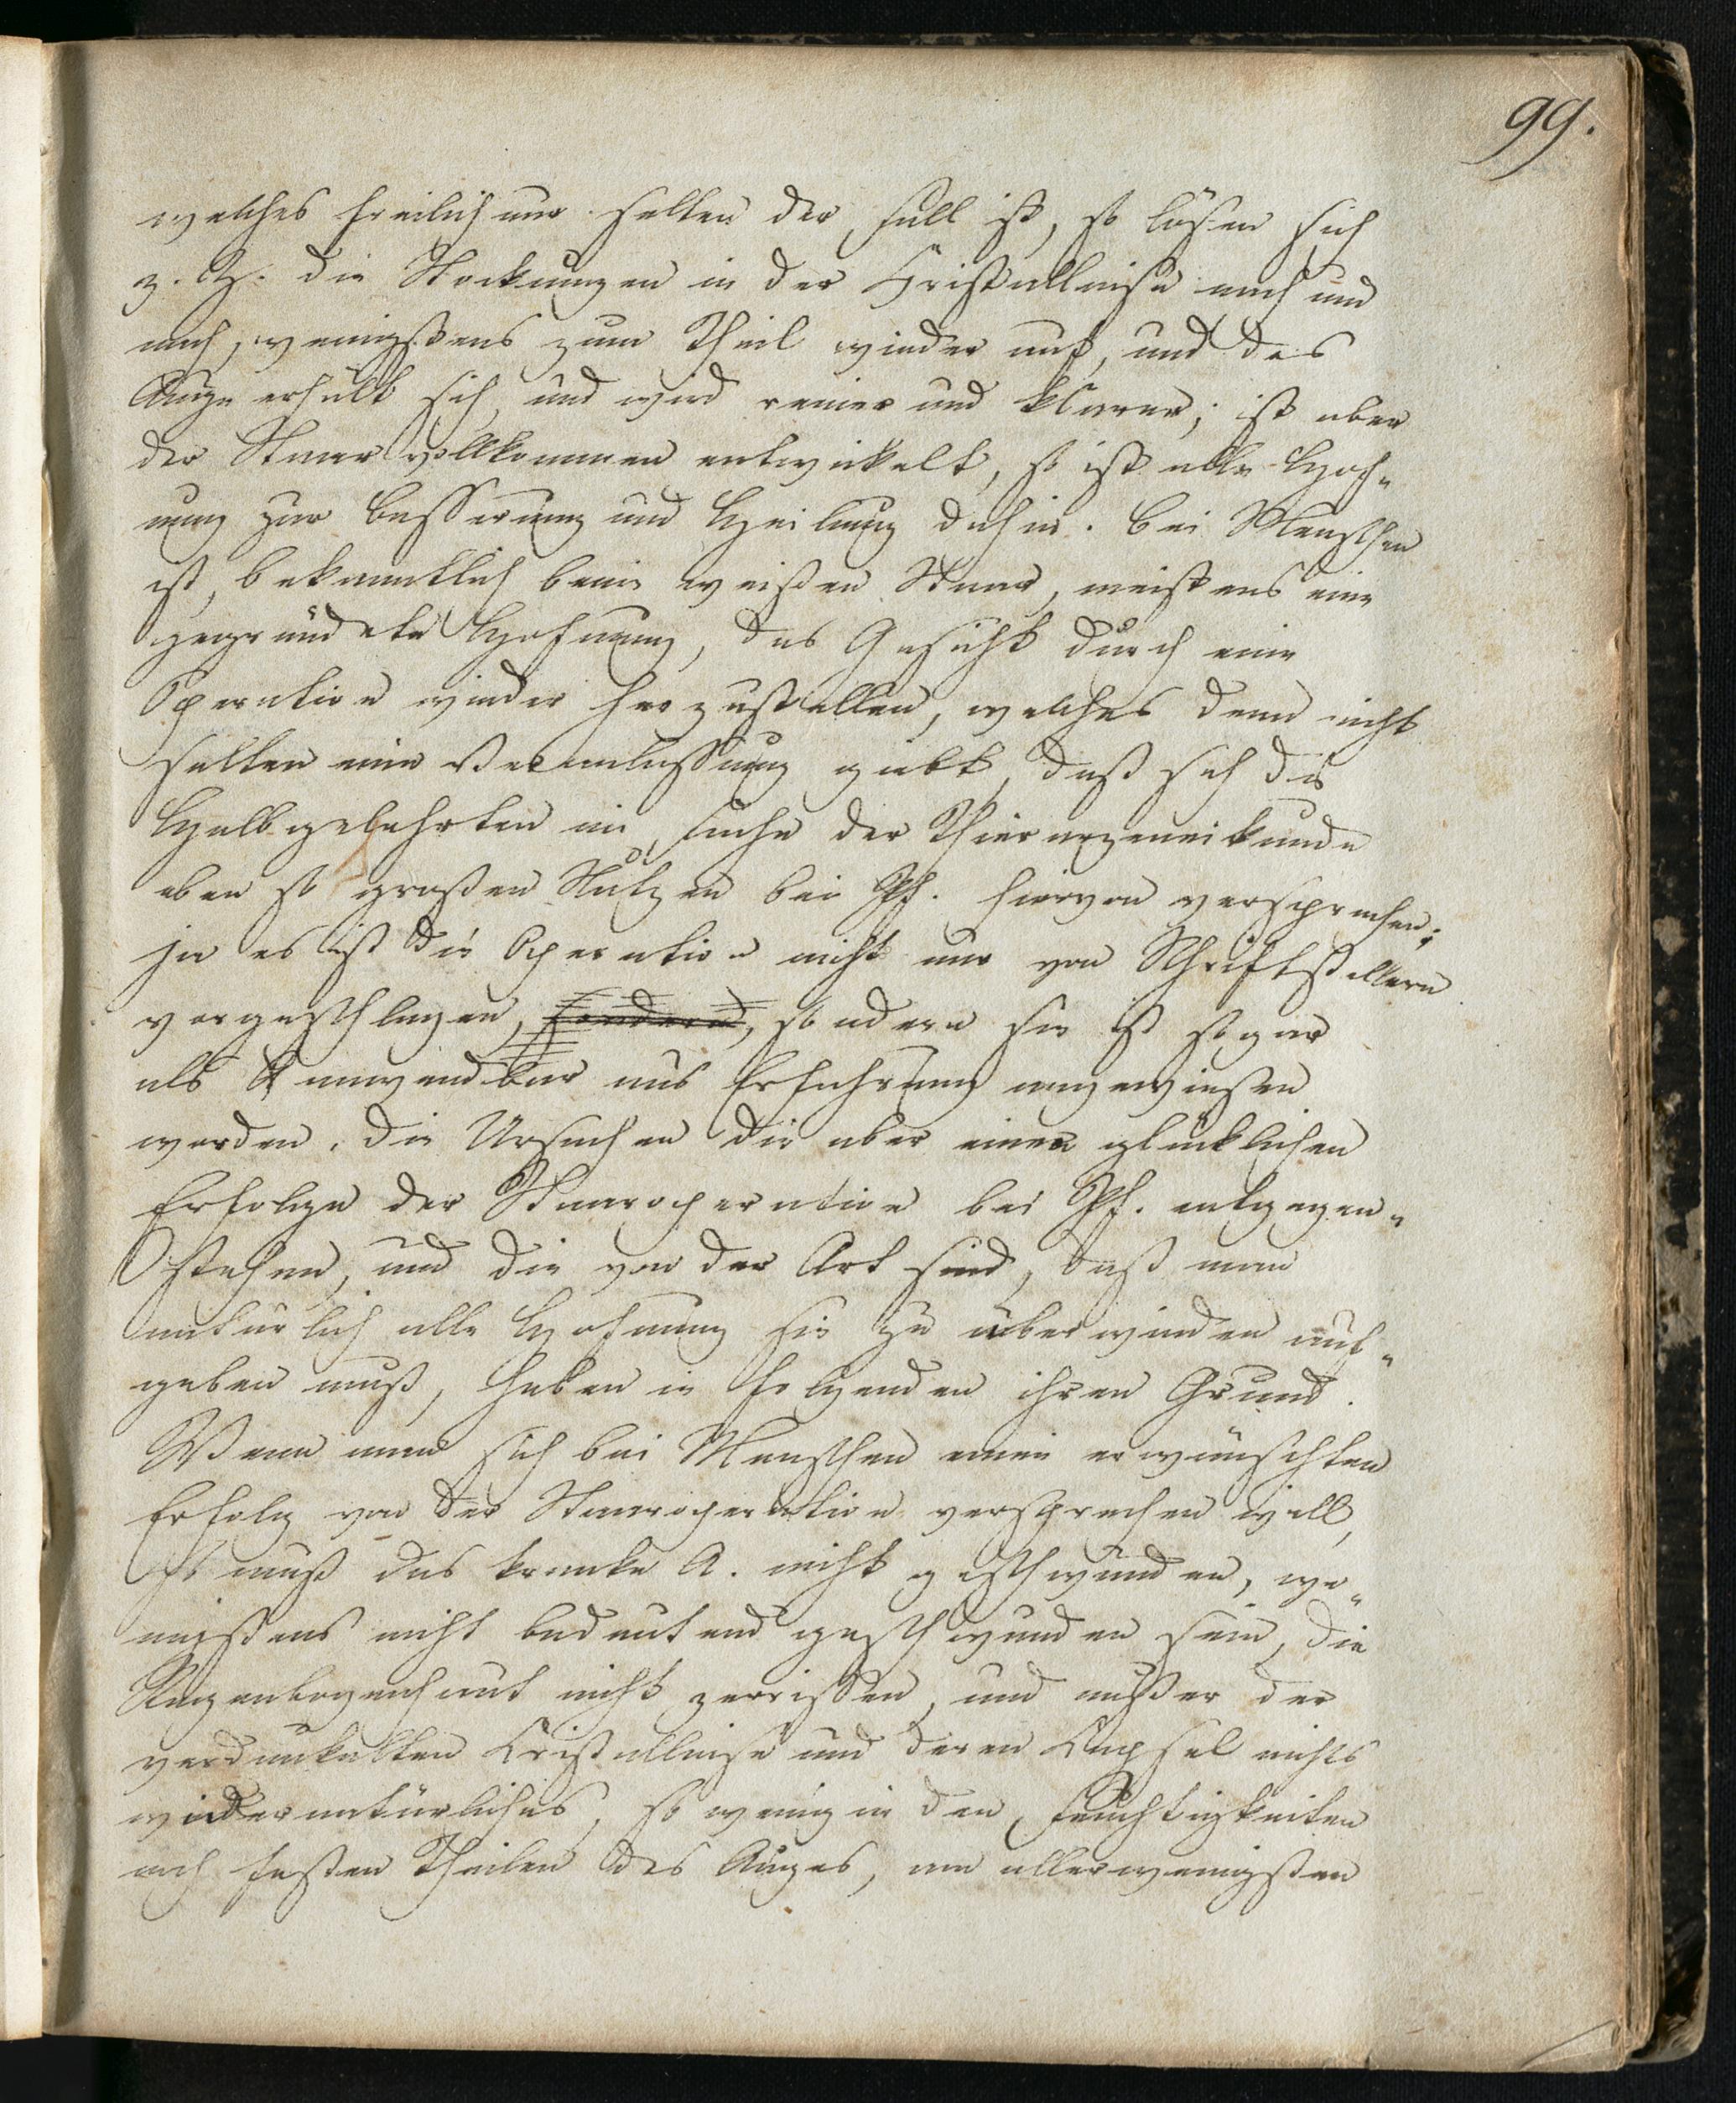 99.
welches freilich nur selten der Fall ist, so lösen sich
z. B. die Stockungen in der Cristallinse nach und
nach, wenigstens zum Theil wieder auf, und das
Auge erhält sich und wird reiner und klarer; ist aber
der Staar vollkommen entwickelt, so ist alle Hof¬
nung zur Besserung und Heilung dahin. Bei Menschen
ist, bekanntlich beim weißen Staar, meistens eine
gegründete Hofnung, das Gesicht durch eine
Operation wieder herzustellen, welches denn nicht
selten eine Veranlassung giebt, daß sich die
Halbgelehrten im Fache der Thierarzeneikunde
eben so großen Nutzen bei Pf. hiervon versprechen;
ja es ist die Operation nicht nur von Schriftstellern
vorgeschlagen, sondern, sondern sie ist sogar
als anwendbar aus Erfahrung angewiesen
worden. Die Ursachen die aber einen glücklichen
Erfolge der Staaroperation bei Pf. entgegen¬
stehen, und die von der Art sind, daß man
natürlich alle Hofnung sie zu überwinden auf¬
geben muß, haben in folgenden ihren Grund.
Wenn man sich bei Menschen einen erwünschten
Erfolg von der Staaroperation versprechen will,
so muß das kranke A. nicht geschwunden, we¬
nigstens nicht bedeutend geschwunden sein, die
Regenbogenhaut nicht zerrissen, und außer der
verdunkelten Cristallinse und deren Capsel nichts
widernatürliches, so wenig in den Feuchtigkeiten
noch festen Theilen des Auges, am allerwenigsten